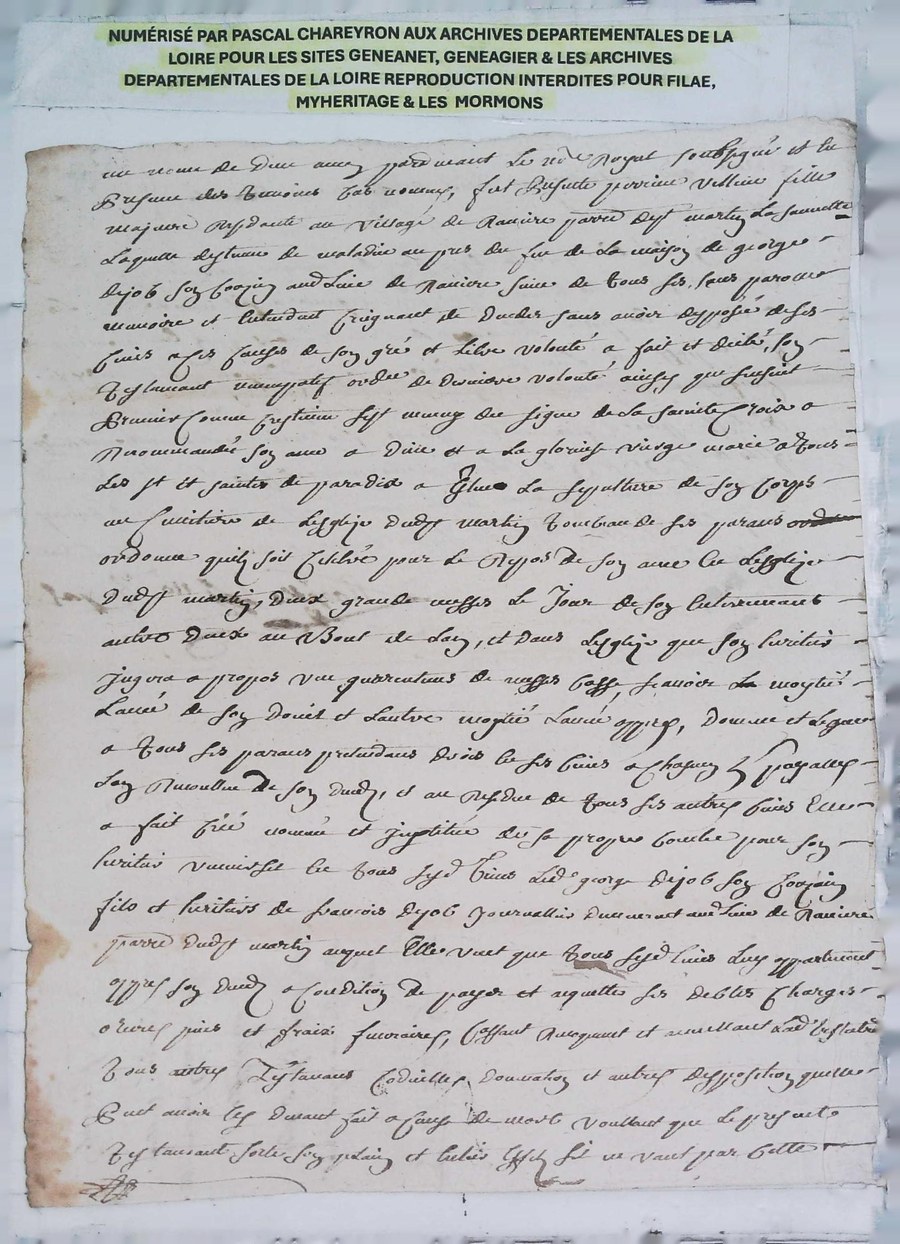 NUMÉRISÉ PAR PASCAL CHAREYRON AUX ARCHIVES DEPARTEMENTALES DE LA
LOIRE POUR LES SITES GENEANET, GENEAGIER & LES ARCHIVES
DEPARTEMENTALES DE LA LOIRE REPRODUCTION INTERDITES POUR FILAE,
MYHERITAGE & LES MORMONS
au nom de Dieu amen pardevant le no.re Royal soubsigné et en
presence des temoins bas nommes, fut presente perrine fille
majeure residante au village de Raniere parre dud st martin la sauveté
laquelle de maladie au pres du feu de la maison de george
dejob son cousin aud lieu de Raniere saine de tous ses sens parolle
memoire et entendant Creignant de deceder sans avoir desposée de ses
biens a ces causes de son gré et libre volonté a fait et dicté son
Testamant nuncupatif ordre de derniere volonté ainsy que sensuit
Premier comme crestiene sest munye du signe de la sainte Croix a
Recommandée son ame a Dieu et a la glorieuse vierge marie a tous
les st et saintes de paradis a la sepulture de son corps
au Cimitière de lesglize dud st martin tombeau de ses parans
ordonne quil soit celebré pour le Repos de son ame en lesglize
dud st martin, deux grande messes le Jour de son enterremant
autre deux au Bout de lan, et dans lesglize que son heritier
jugera a propos une quarantaine de messes basse, scavoir la moytié
lannée de son deces et lautre moytié lannée appres, Donne et Legue
a tous ses parans pretendans droit en ses biens a chascun 5 s payables
lan Revollu de son deces, et au Residue de tous ses autres biens Elle
a fait créé nommé et justitué de sa propre bouche pour son
heritier universel en tous sesd biens Led george dejob son cousin
fils et heritier de francois dejob journallier demeurant aud lieu de Raniere
parre dud st martin auquel Elle veut que tous sesd biens luy appartienent
appres son deces a condition de payer et aquitter ses debtes charges
œuvres pies et fraix funeraires, Cassant Revoquant et annullant lad testatrice
tous autres Testamans Codicilles, donnation et autres despposition quelle
peut avoir cy devant fait a cause de mort voullant que le presente
Testamant sorte son plain et entier effet sil ne vaut par cette